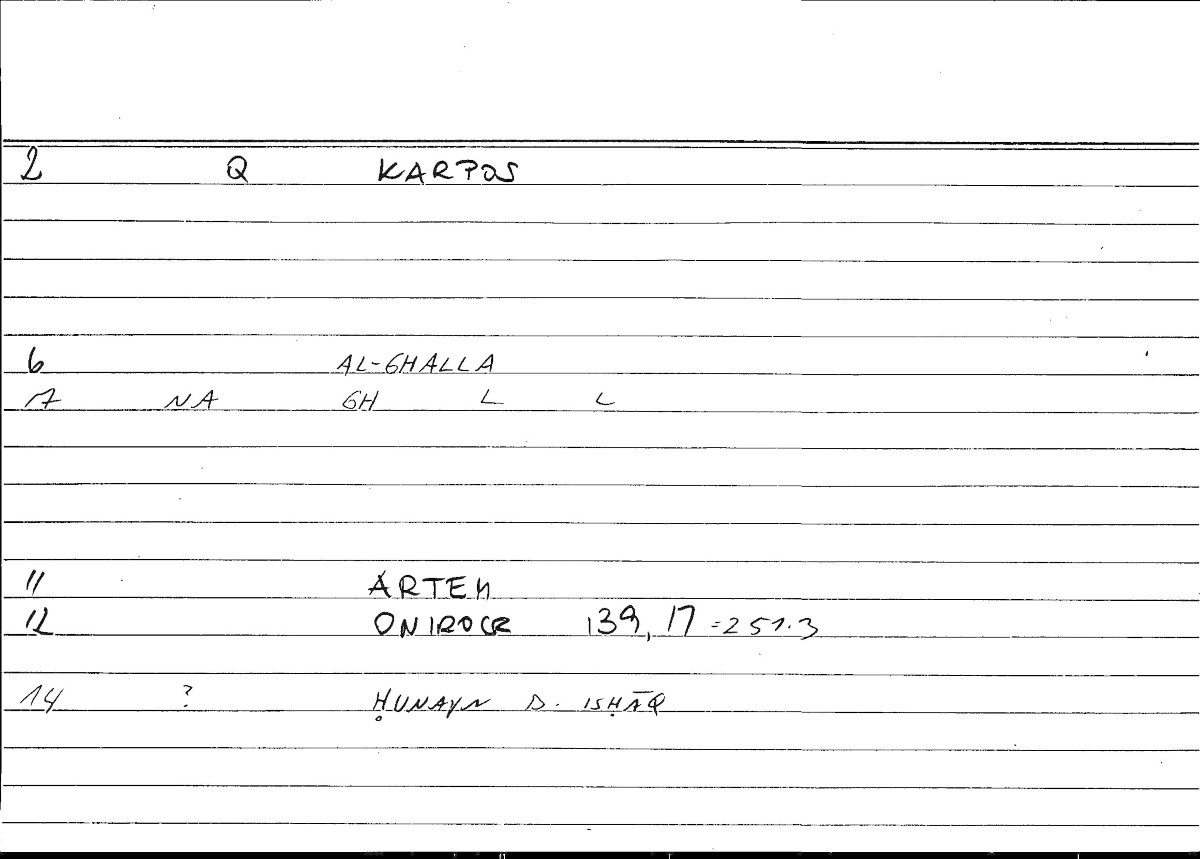 2 Q KARPOS
6 AL-GHALLA
17 NA GH L L
11 ARTEM
12 ONIROCR 139, 17 = 251.3
14 ? ḤUNAYN B. ISḤĀQ